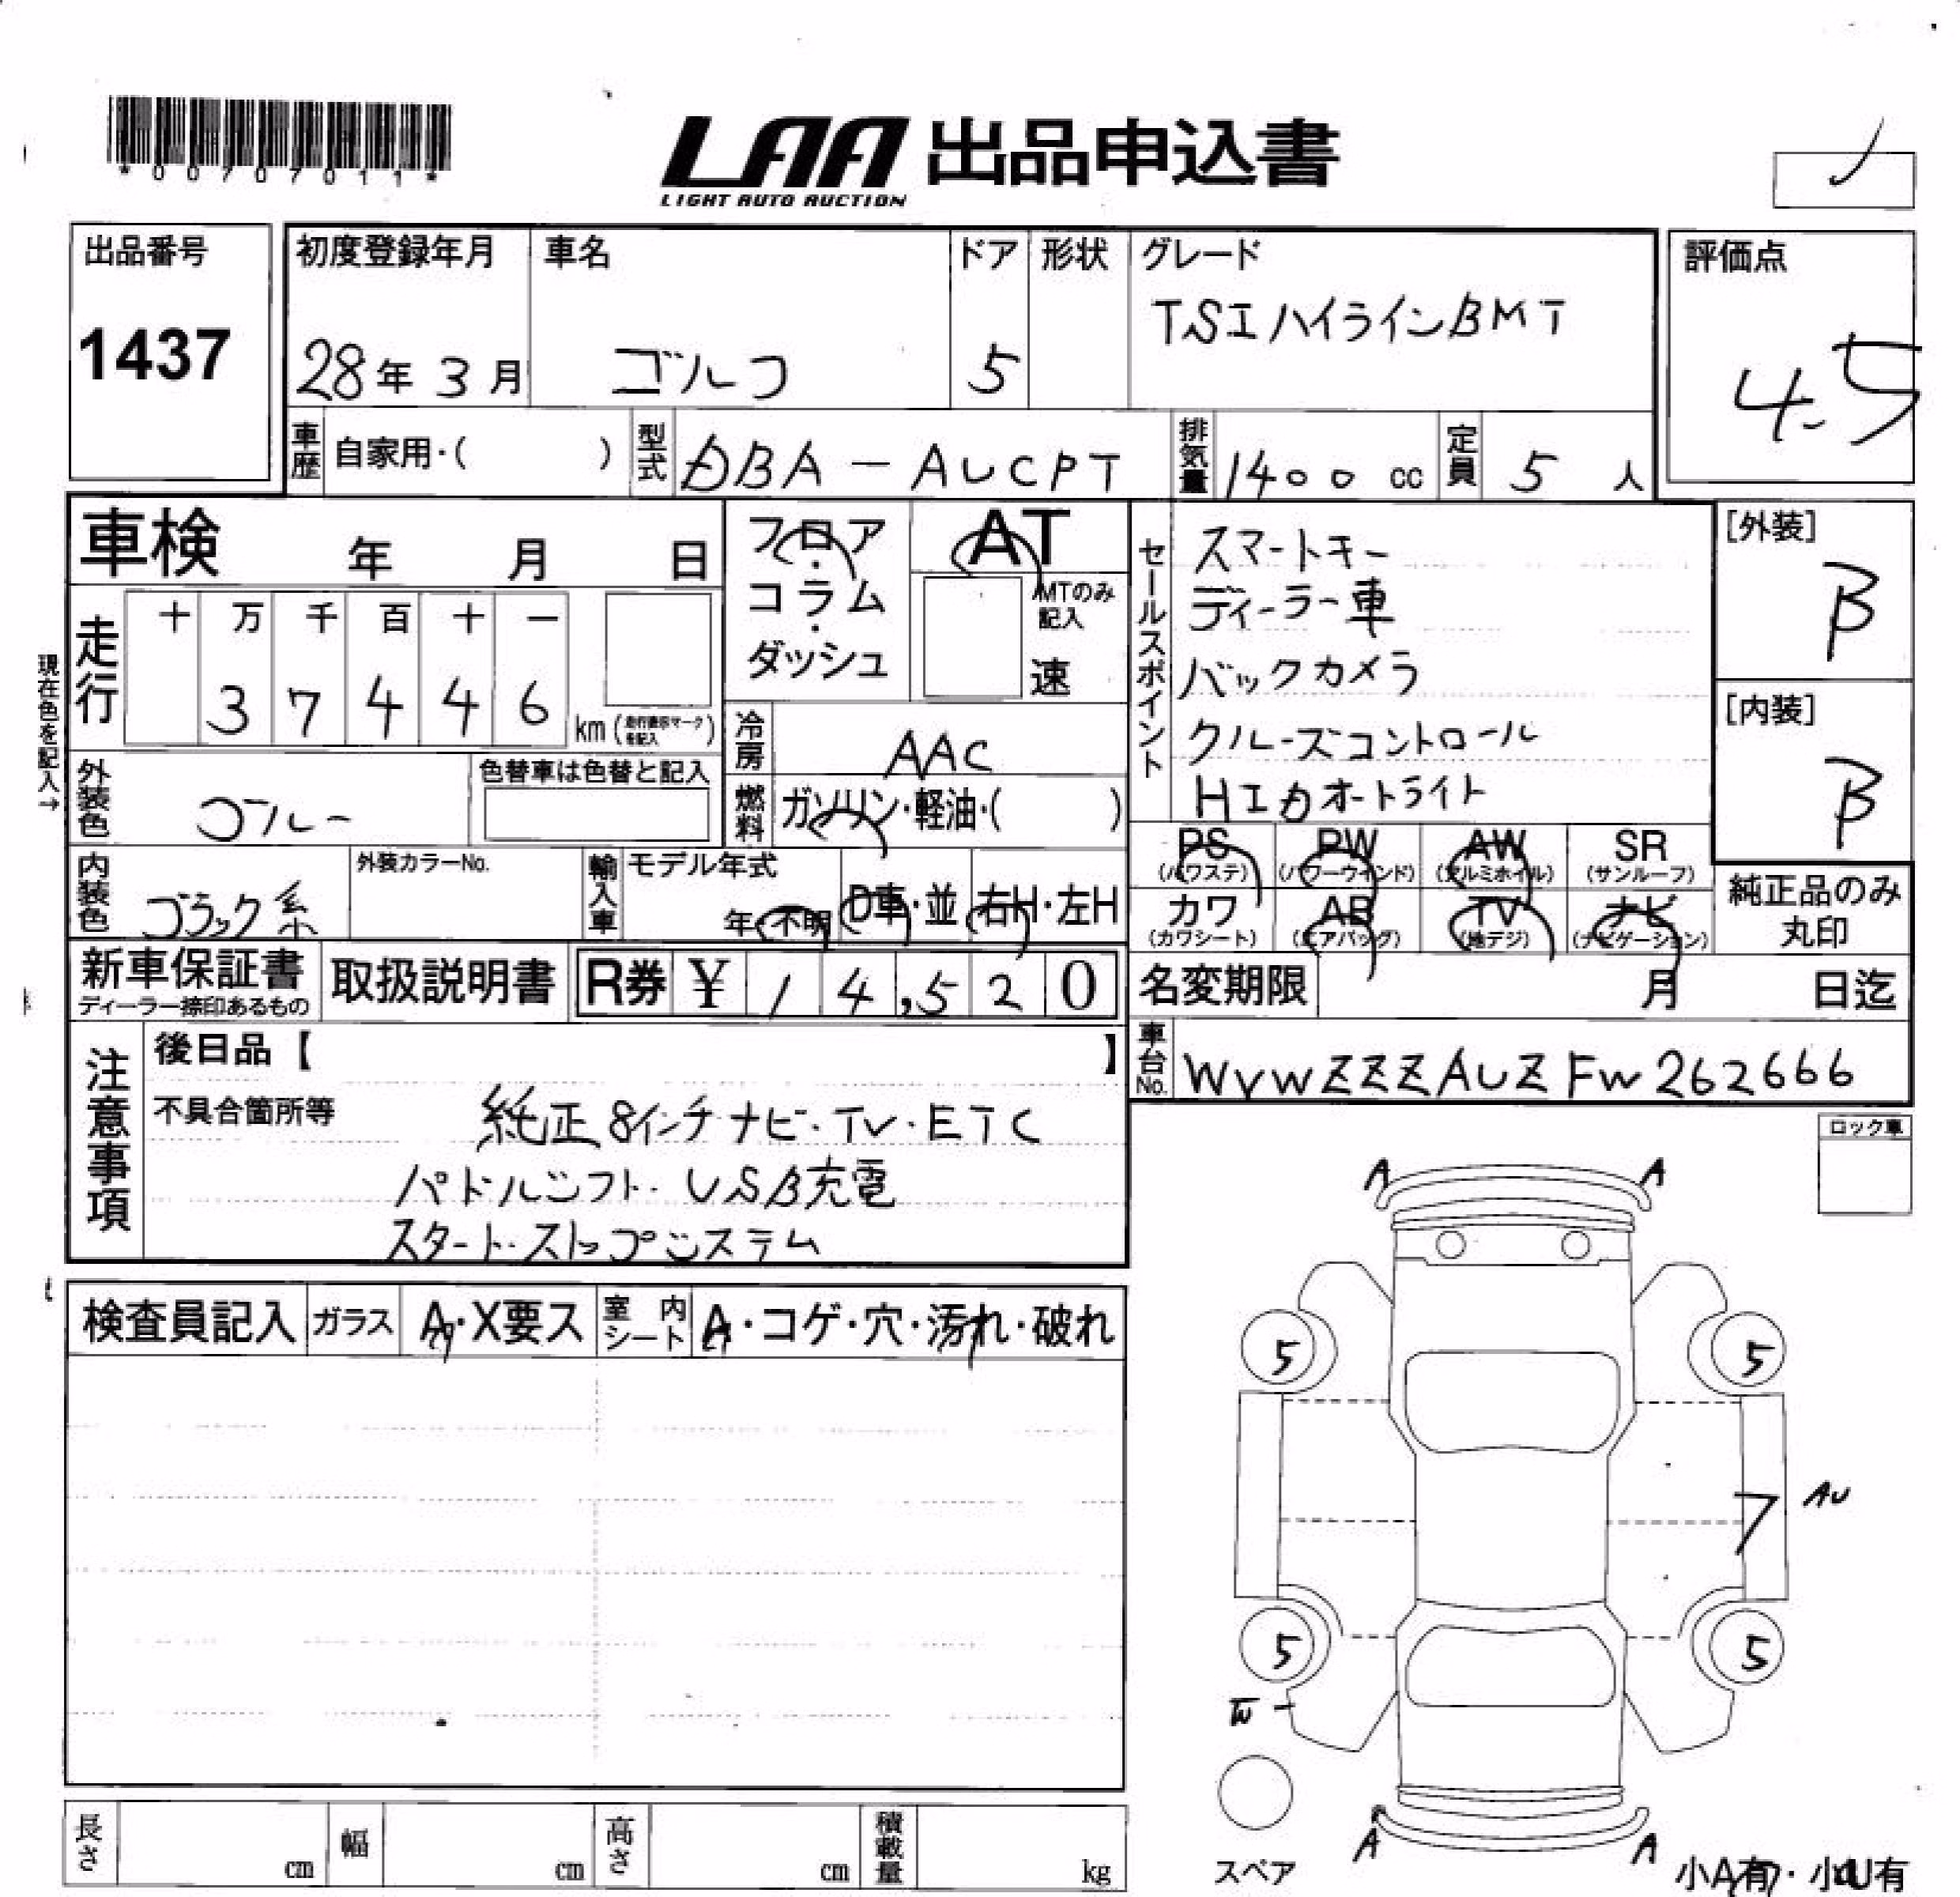 *00707011*
LAA 出品申込書
LIGHT AUTO AUCTION
出品番号
1437
初度登録年月
28年 3月
車名
ゴルフ
ドア
5
形状
グレード
TSIハイラインBMT
評価点
4.5
車歴 自家用・( )
型式 DBA-AUCPT
排気量 1400 cc
定員 5 人
車検 年 月 日
フロア・コラム・ダッシュ
AT
MTのみ記入
速
セールスポイント
スマートキー
ディーラー車
バックカメラ
クルーズコントロール
HIDオートライト
[外装]
B
[内装]
B
現在色を記入→
走行
十 万 千 百 十 一
3 7 4 4 6
km (走行表示マークを記入)
冷房 AAC
外装色 ブルー
色替車は色替と記入
燃料 ガソリン・軽油・( )
内装色 ブラック系
外装カラーNo.
輸入車
モデル年式
年・不明
D車・並
右H・左H
PS (パワステ)
PW (パワーウインド)
AW (アルミホイル)
SR (サンルーフ)
カワ (カワシート)
AB (エアバッグ)
TV (地デジ)
ナビ (ナビゲーション)
純正品のみ丸印
新車保証書
ディーラー捺印あるもの
取扱説明書
R券 ¥ 14,520
名変期限 月 日迄
車台No. WVWZZZAUZFW262666
注意事項
後日品【 】
不具合箇所等
純正8インチナビ・TV・ETC
パドルシフト・USB充電
スタート・ストップシステム
ロック車
検査員記入
ガラス A・X要ス
室内シート A・コゲ・穴・汚れ・破れ
A A
5 5
7 AU
5 5
A A
スペア
小A有・小U有
長さ cm
幅 cm
高さ cm
積載量 kg